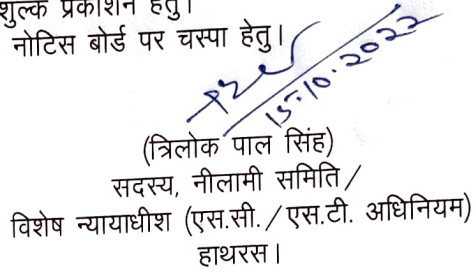 शुल्क प्रकाशन हेतु।
नोटिस बोर्ड पर चस्पा हेतु।
15.10.2022
(त्रिलोक पाल सिंह)
सदस्य, नीलामी समिति /
विशेष न्यायाधीश (एस.सी. / एस.टी. अधिनियम)
हाथरस।